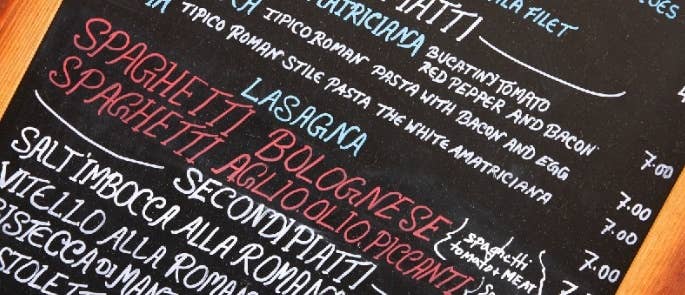 LA FILET
PIATTI
ATRICIANA BUCATINY TOMATO
RED PEPPER AND BACON 7.00
TIPICO ROMAN PASTA WITH BACON AND EGG 7.00
TIPICO ROMAN STILE PASTA THE WHITE AMATRICIANA 7.00
LASAGNA 7.00
SPAGHETTI BOLOGNESE { spaghetti
tomato + MEAT } 7.
SPAGHETTI AGLIO OLIO PICCANTI {
SECONDI PIATTI
SALT'IMBOCCA ALLA ROMANA
VITELLO ALLA ROMAN
BISTECCA DI MAN
STOLET